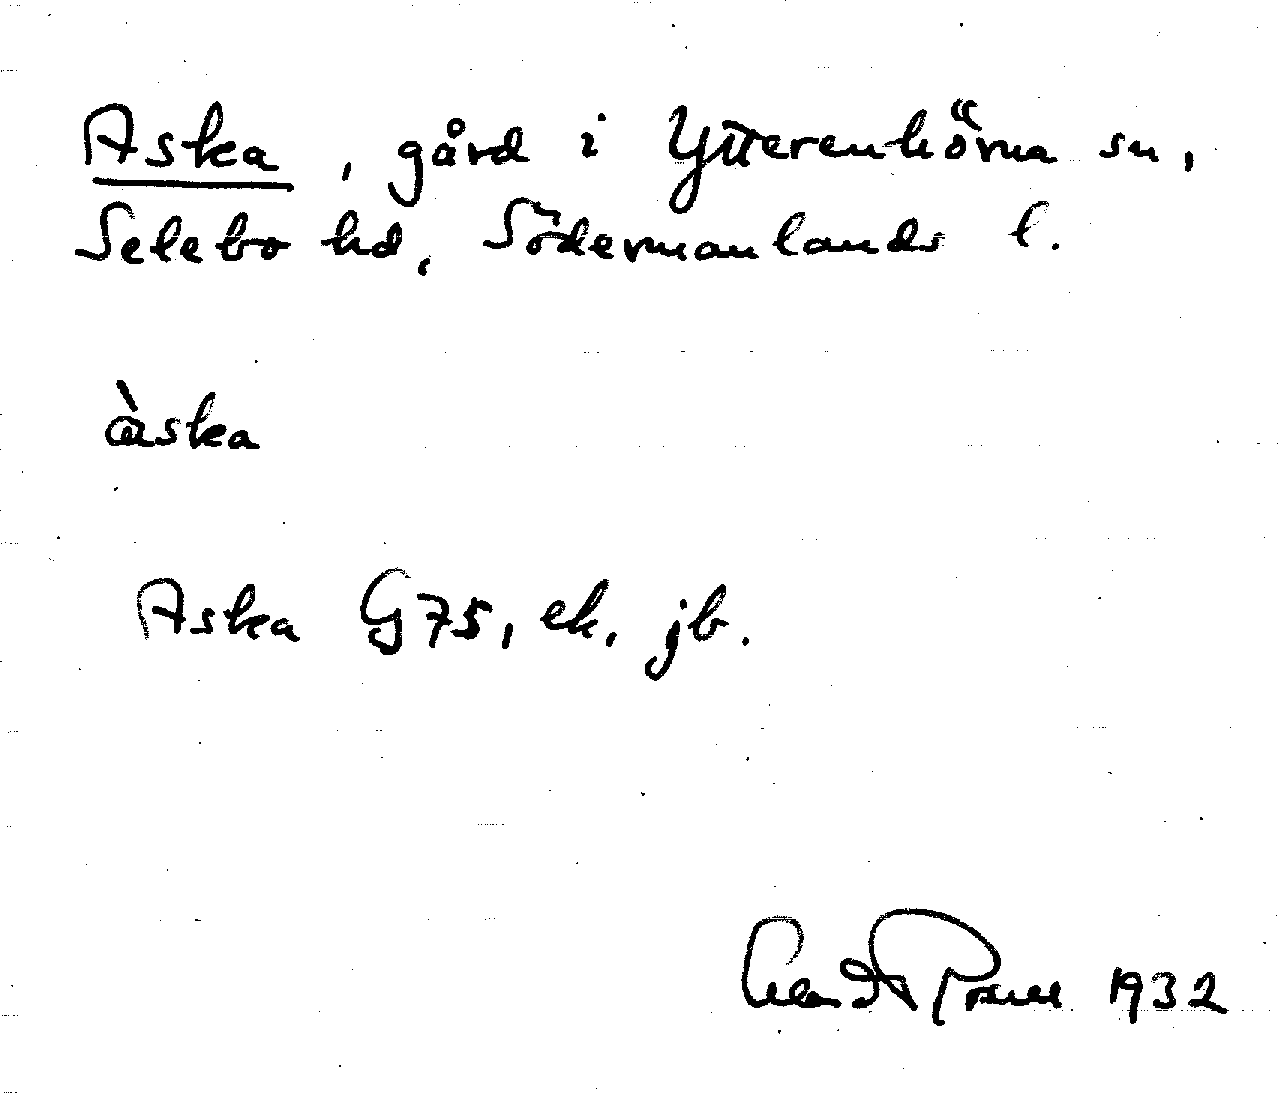 Aska, gård i Ytterenhörna sn,
Selebo hd, Södermanlands l.
àska
Aska G75, ek, jb.
1932